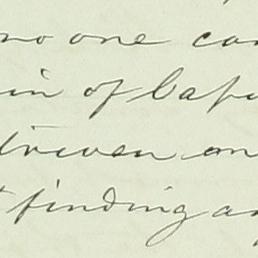 no one can
in of Cap
driven on
finding a